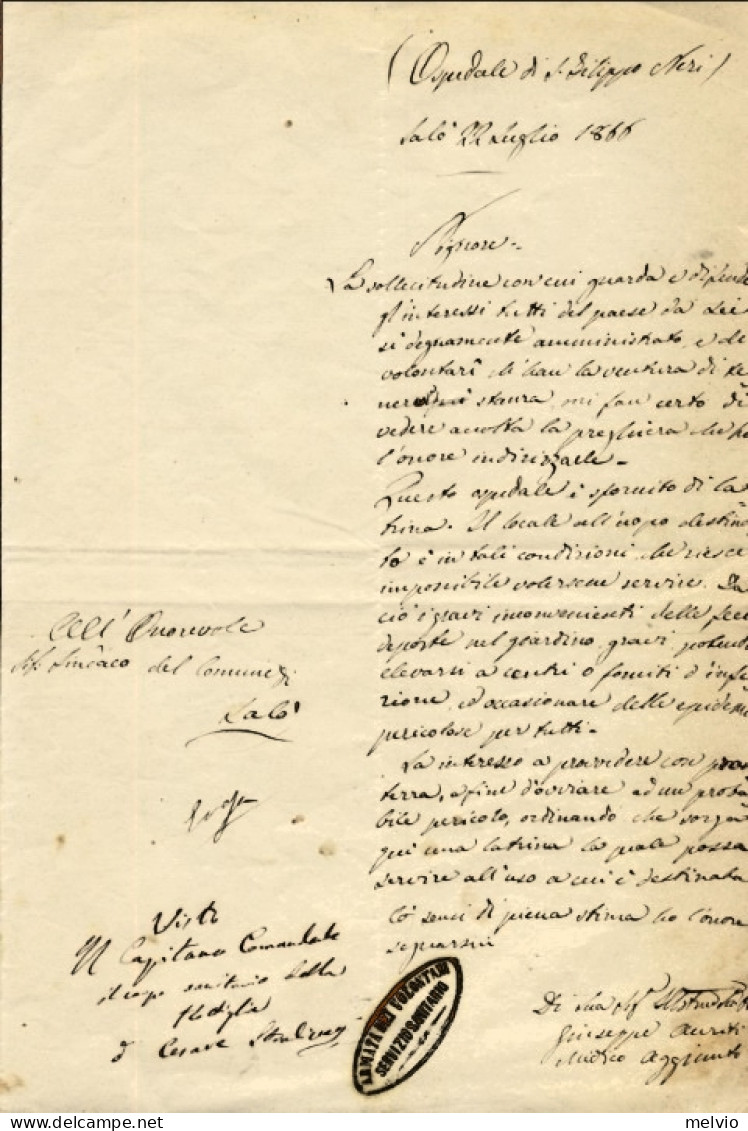 (Ospedale di S. Filippo Neri)
Salò 22 Luglio 1866
Signore -
La sollecitudine con cui guarda e difende
gl'interessi tutti del paese da Lei
sì degnamente amministrato, e de
volontarî ch'han la ventura di te
ner stanza, mi fan certo di
vedere accolta la preghiera che ho
l'onore indirizzarle -
Questo ospedale è sfornito di la
trina. Il locale all'uopo destina
to è in tali condizioni, che riesce
impossibile volersene servire. Da
ciò i gravi inconvenienti delle feci
deposte nel giardino, gravi, potendo
elevarsi a centri o fomiti d'infe
zione, ed occasionare delle epidemi
pericolose per tutti -
La interesso a provvedere con
terra, a fine d'ovviare ad un proba
bile pericolo, ordinando che sorga
qui una latrina la quale possa
servire all'uso a cui è destinata
Co' sensi di piena stima ho l'onore
segnarmi
Di Sua
Giuseppe Auriti
Medico Aggiunto
All'Onorevole
Sig. Sindaco del Comune di
Salò
Visto
Il Capitano Comandante
il corpo sanitario della
flotiglia
Cesare
ARMATA DEI VOLONTARI
SERVIZIO SANITARIO
melvio